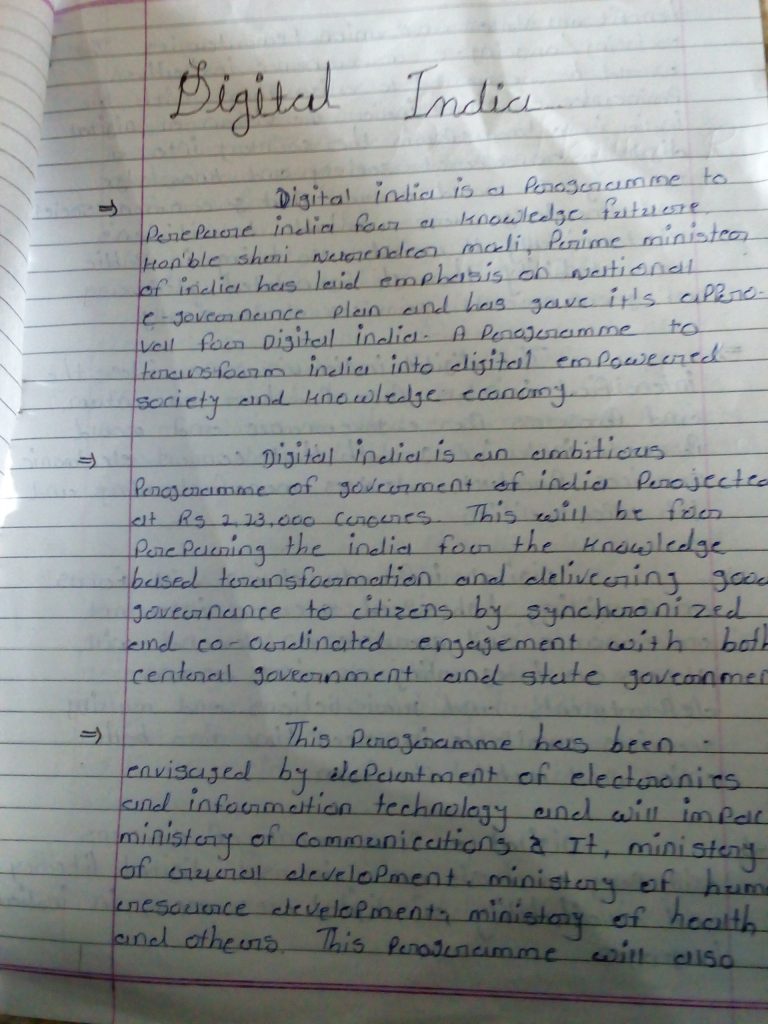 Digital India
⇒ Digital india is a Programme to
Prepare india for a knowledge future.
Hon'ble shri narendra modi, Prime minister
of india has laid emphasis on national
e-governance plan and has gave it's appro-
vall for Digital india. A Programme to
transform india into digital empowered
society and knowledge economy.
⇒ Digital india is an ambitious
Programme of goverment of india Projected
at Rs 1,13,000 crores. This will be for
PrePairing the india for the knowledge
based transformation and delivering good
governance to citizens by synchronized
and co-ordinated engagement with both
central government and state governmen
⇒ This Programme has been
envisaged by dePartment of electronics
and information technology and will impac
ministry of communications & It, ministry
of rural develoPment, ministry of hum
resource develoPment, ministry of health
and others. This Programme will also